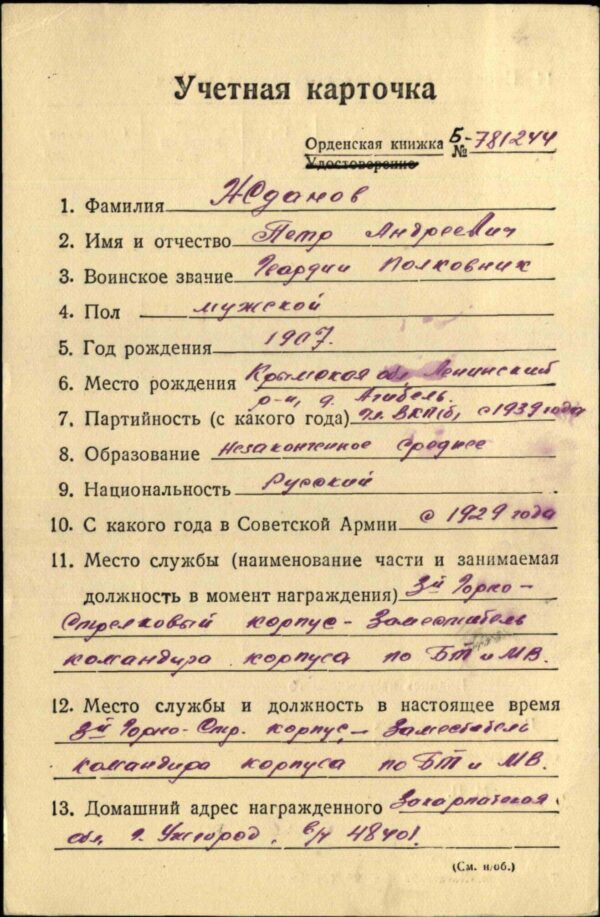 Учетная карточка
Орденская книжка Б-№ 781244
Удостоверение
1. Фамилия Жданов
2. Имя и отчество Петр Андреевич
3. Воинское звание Гвардии Полковник
4. Пол мужской
5. Год рождения 1907.
6. Место рождения Крымская обл. Ленинский
р-н, д. Агибель.
7. Партийность (с какого года) Чл. ВКП(б), с 1939 года
8. Образование Незаконченное среднее
9. Национальность Русский
10. С какого года в Советской Армии с 1929 года
11. Место службы (наименование части и занимаемая
должность в момент награждения) 3й Горно-
Стрелковый корпус - Заместитель
командира корпуса по БТ и МВ.
12. Место службы и должность в настоящее время
3й Горно-Стр. корпус - Заместитель
командира корпуса по БТ и МВ.
13. Домашний адрес награжденного Закарпатская
обл. г. Ужгород, в/ч 48401.
(См. н/об.)